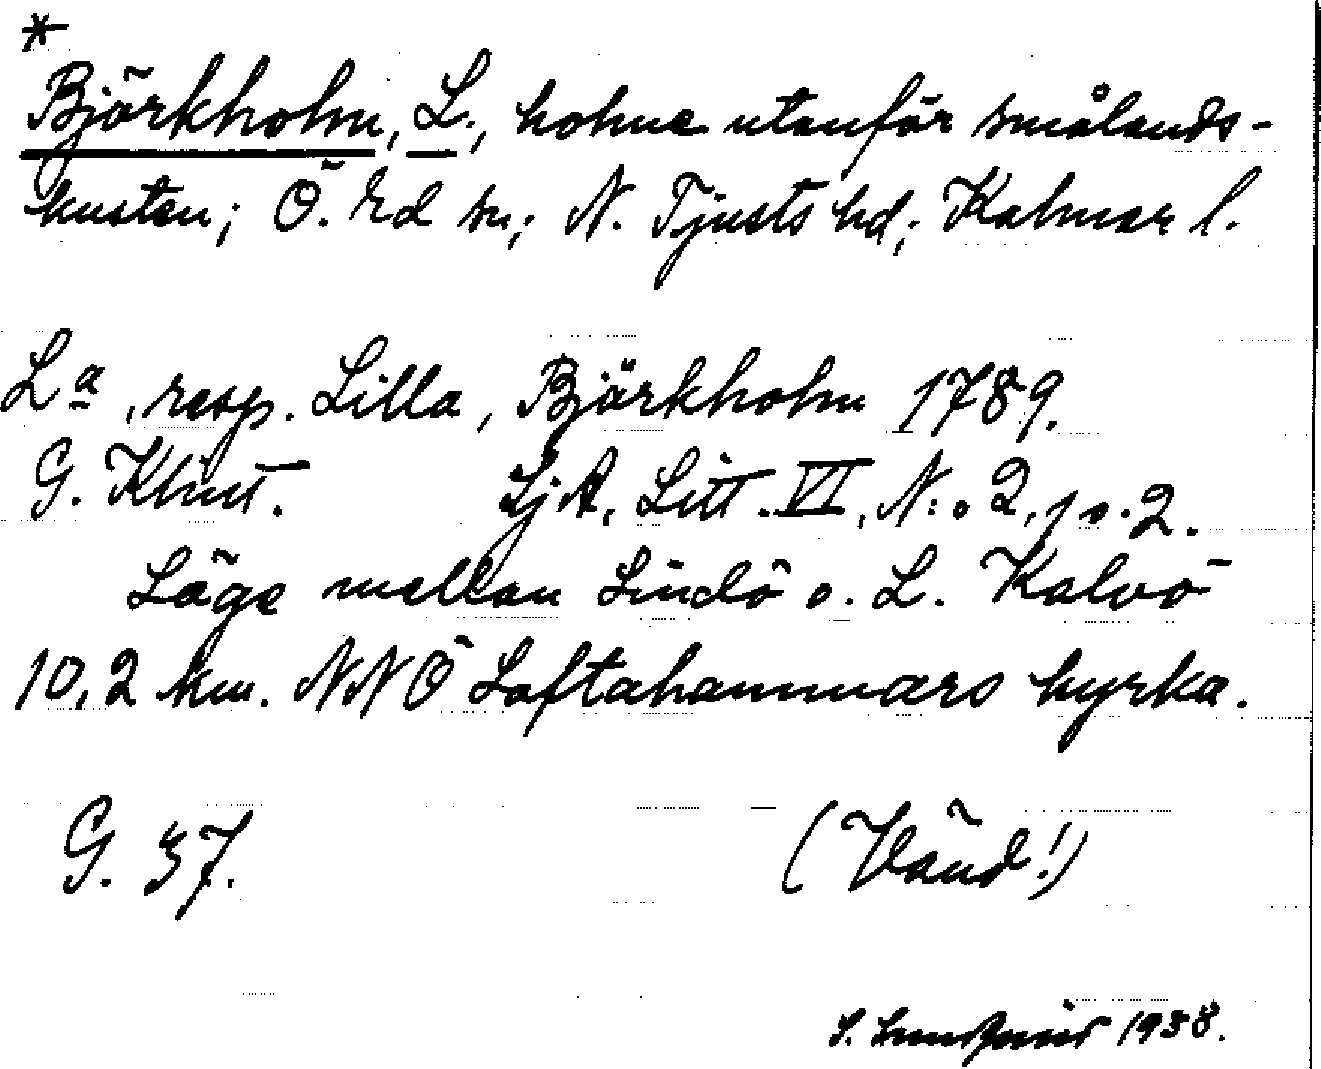 *
Björkholm, L., holme utanför smålands-
kusten; Ö. Ed sn; N. Tjusts hd; Kalmar l.
La, resp. Lilla, Björkholm 1789.
G. Klint. SjA, Litt. VI, N:o 2, p. 2.
Läge mellan Lindö o. L. Kalvö
10,2 km. NNÖ Loftahammars kyrka.
G. 37. (Vänd!)
S. 1938.